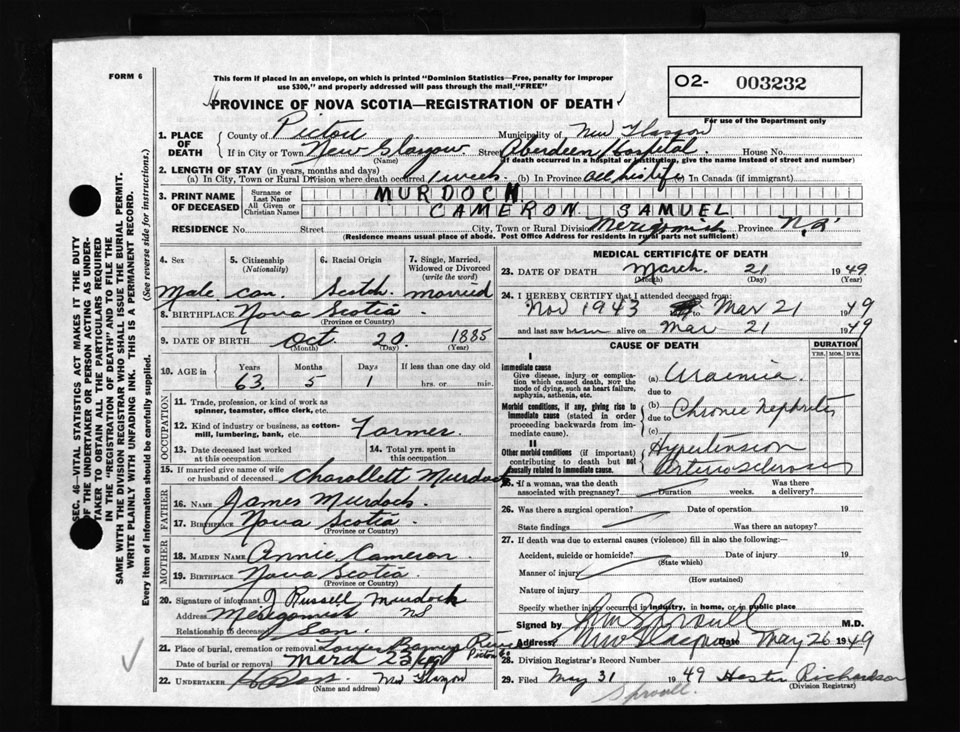 FORM 6
This form if placed in an envelope, on which is printed "Dominion Statistics—Free, penalty for improper
use $300," and properly addressed will pass through the mail "FREE"
PROVINCE OF NOVA SCOTIA—REGISTRATION OF DEATH
O2- 003232
For use of the Department only
1. PLACE OF DEATH
County of Pictou Municipality of New Glasgow
If in City or Town New Glasgow Street Aberdeen Hospital House No.
(Name) (If death occurred in a hospital or institution, give the name instead of street and number)
2. LENGTH OF STAY (in years, months and days)
(a) In City, Town or Rural Division where death occurred 1 week (b) In Province all his life (c) In Canada (if immigrant)
3. PRINT NAME OF DECEASED
Surname or Last Name MURDOCH
All Given or Christian Names CAMERON SAMUEL
RESIDENCE No. Street City, Town or Rural Division Merigomish Province N.S.
(Residence means usual place of abode. Post Office Address for residents in rural parts not sufficient)
4. Sex 5. Citizenship (Nationality) 6. Racial Origin 7. Single, Married, Widowed or Divorced (write the word)
Male Can. Scotch married
8. BIRTHPLACE Nova Scotia
(Province or Country)
9. DATE OF BIRTH Oct. 20 1885
(Month) (Day) (Year)
10. AGE in Years Months Days If less than one day old
63 5 1 hrs. or min.
OCCUPATION
11. Trade, profession, or kind of work as
spinner, teamster, office clerk, etc.
12. Kind of industry or business, as cotton-
mill, lumbering, bank, etc. Farmer.
13. Date deceased last worked at this occupation 14. Total yrs. spent in this occupation
15. If married give name of wife
or husband of deceased Charollett Murdoch
FATHER
16. Name James Murdoch
17. Birthplace Nova Scotia
(Province or Country)
MOTHER
18. MAIDEN NAME Annie Cameron
19. BIRTHPLACE Nova Scotia
(Province or Country)
20. Signature of informant J Russell Murdoch
Address Merigomish NS
Relationship to deceased Son.
21. Place of burial, cremation or removal Lower Barneys River Pictou Co
Date of burial or removal March 23/49
22. UNDERTAKER New Glasgow
(Name and address)
MEDICAL CERTIFICATE OF DEATH
23. DATE OF DEATH March 21 1949
(Month) (Day) (Year)
24. I HEREBY CERTIFY that I attended deceased from:
Nov 1943 to Mar 21 1949
and last saw him alive on Mar 21 1949
CAUSE OF DEATH DURATION
YRS. MOS. DYS.
I
Immediate cause
Give disease, injury or compli-
cation which caused death, NOT the
mode of dying, such as heart failure,
asphyxia, asthenia, etc.
(a) Uraemia.
due to
Morbid conditions, if any, giving rise to
immediate cause (stated in order
proceeding backwards from im-
mediate cause).
(b) Chronic Nephritis
due to
(c)
II
Other morbid conditions (if important)
contributing to death but not
causally related to immediate cause.
Hypertension
Arteriosclerosis
25. If a woman, was the death
associated with pregnancy? Duration weeks. Was there a delivery?
26. Was there a surgical operation? Date of operation 19
State findings Was there an autopsy?
27. If death was due to external causes (violence) fill in also the following:
Accident, suicide or homicide? Date of injury 19
(State which)
Manner of injury
(How sustained)
Nature of injury
Specify whether injury occurred in industry, in home, or in public place
Signed by Sproull M.D.
Address New Glasgow Date May 26 1949
28. Division Registrar's Record Number
29. Filed May 31 1949 Hester Richardson
(Division Registrar)
Sproull.
SEC. 46—VITAL STATISTICS ACT MAKES IT THE DUTY
OF THE UNDERTAKER OR PERSON ACTING AS UNDER-
TAKER TO OBTAIN ALL THE PARTICULARS REQUIRED
IN THE "REGISTRATION OF DEATH" AND TO FILE THE
SAME WITH THE DIVISION REGISTRAR WHO SHALL ISSUE THE BURIAL PERMIT.
WRITE PLAINLY WITH UNFADING INK. THIS IS A PERMANENT RECORD.
Every item of Information should be carefully supplied. (See reverse side for instructions.)